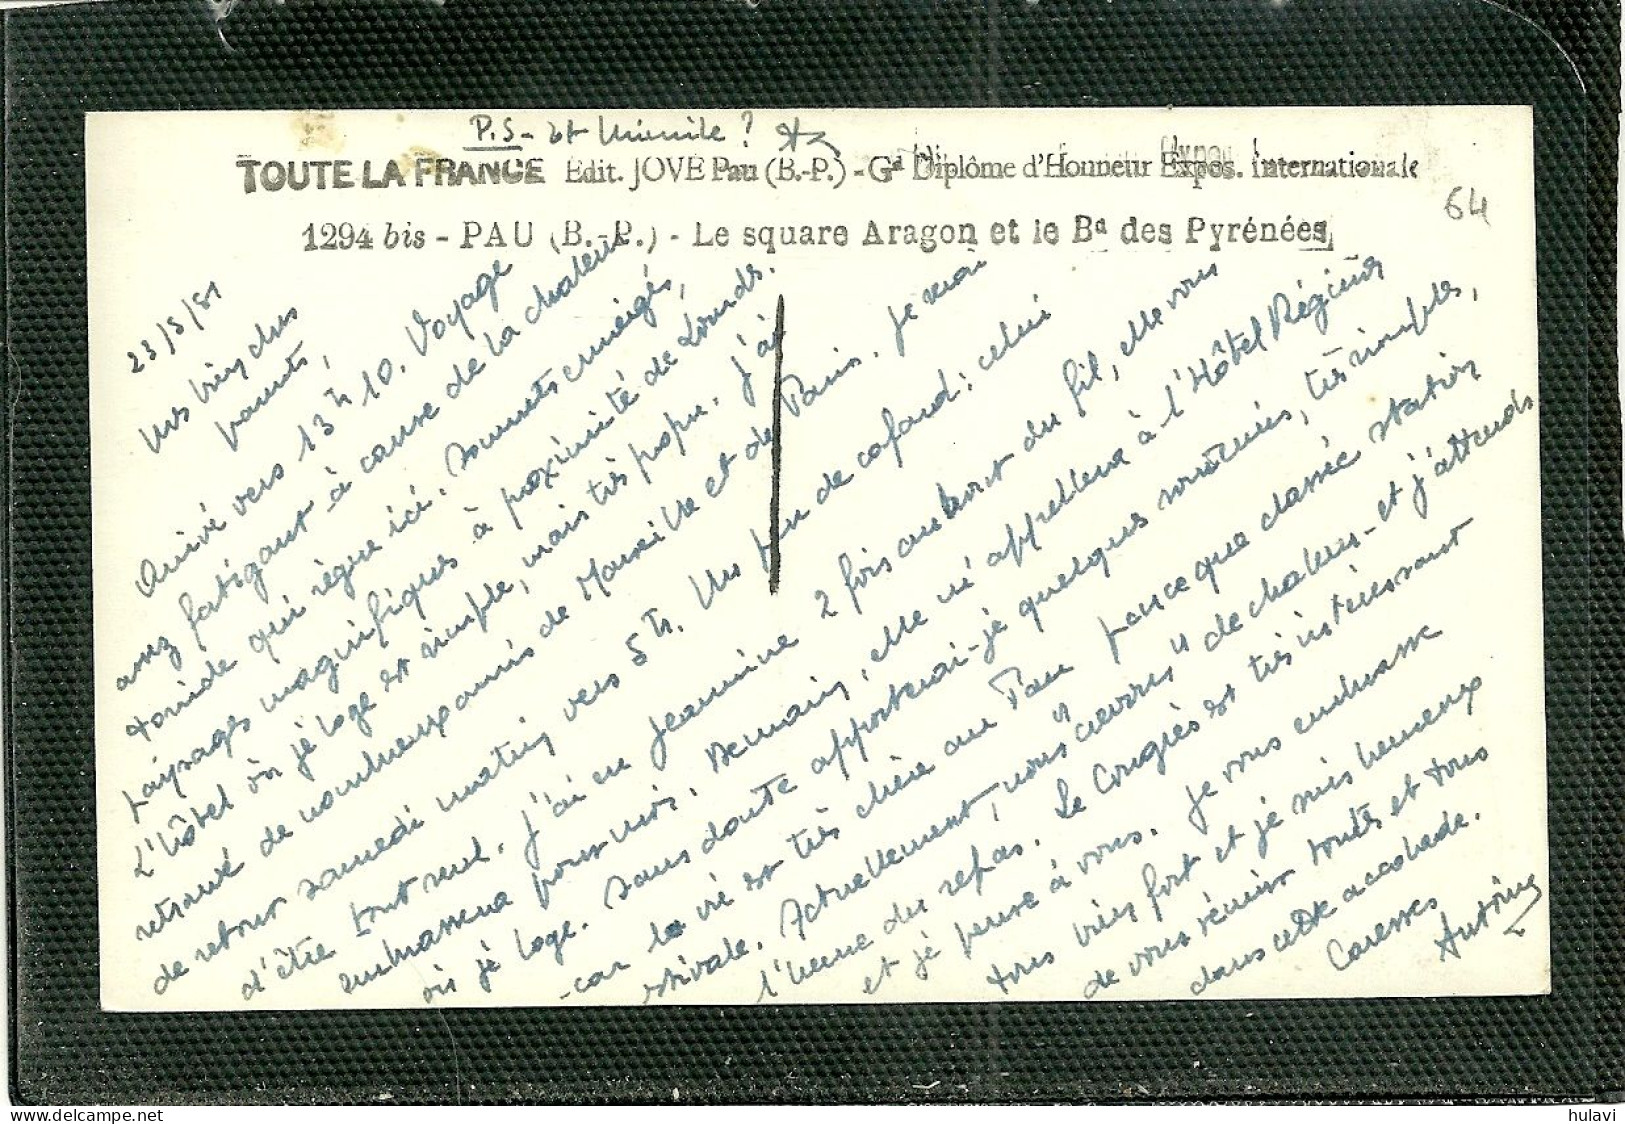 P.S - et Mimile ?
TOUTE LA FRANCE Edit. JOVE Pau (B.-P.) - Gd Diplôme d'Honneur Expos. Internationale
64
1294 bis - PAU (B.-P.) - Le square Aragon et le Bd des Pyrénées
23/5/51
Mes bien chers
parents,
Arrivé vers 13h10. Voyage
assez fatigant à cause de la chaleur
torride qui règne ici. Sommets enneigés,
paysages magnifiques à proximité de Lourdes.
L'hôtel où je loge est simple, mais très propre. J'ai
retrouvé de nombreux amis de Marseille et de Paris. Je serai
de retour samedi matin vers 5h. Un peu de cafard : celui
d'être tout seul. J'ai eu Jeannine 2 fois au bout du fil, elle vous
embrassera pour moi. Demain, elle m'appellera à l'Hôtel Régina
où je loge. Sans doute apporterai-je quelques souvenirs, très simples,
-car la vie est très chère au Pau parce que classée station
estivale. Actuellement, nous "crevons" de chaleur - et j'attends
l'heure du repas. Le Congrès est très intéressant
et je pense à vous. Je vous embrasse
tous bien fort et je suis heureux
de vous réunir toutes et tous
dans cette accolade.
Caresses
Antoine
hulavi